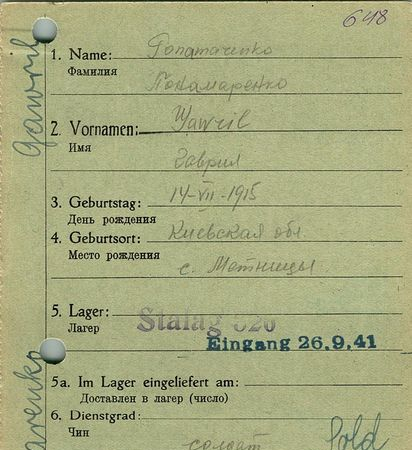 648
1. Name: Ponamarenko
Фамилия
Понамаренко
2. Vornamen: Gawril
Имя
Гаврил
3. Geburtstag: 14-VII-1915
День рождения
4. Geburtsort: Киевская обл
Место рождения
с. Мотницы
5. Lager: Stalag 326
Лагер
Eingang 26.9.41
5a. Im Lager eingeliefert am:
Доставлен в лагер (число)
6. Dienstgrad: Sold
Чин
солдат
Gawril
arenko